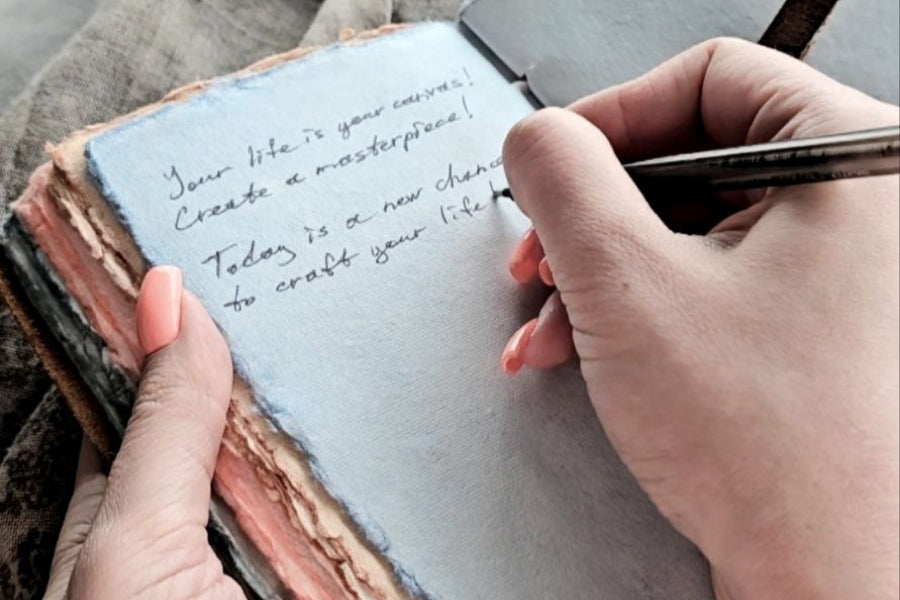 Your life is your canvas!
Create a masterpiece!
Today is a new chance
to craft your life!